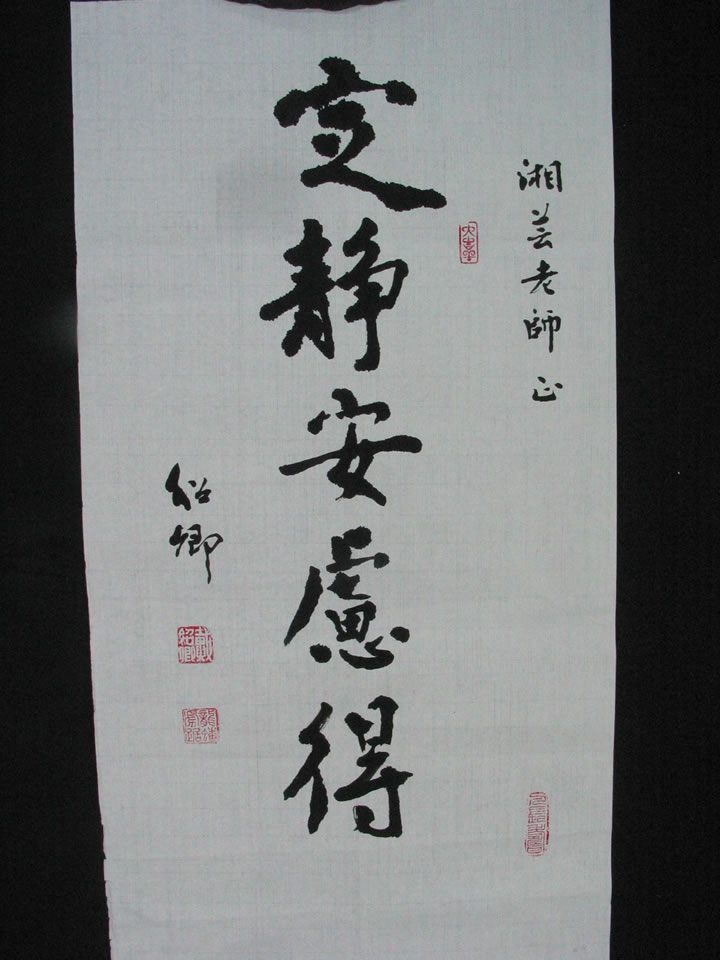 湘芸老師正
定靜安慮得
紹卿